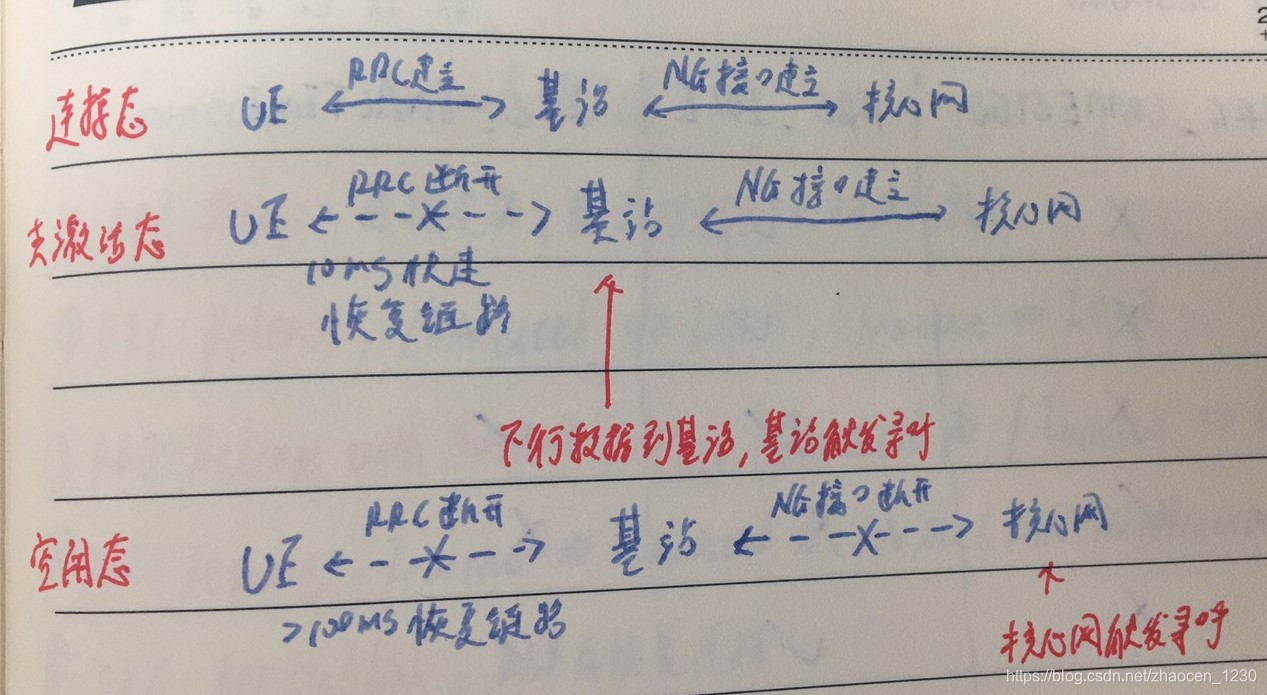 RRC建立 NG接口建立
连接态 UE 基站 核心网
RRC断开 NG接口建立
去激活态 UE 基站 核心网
10ms快速
恢复链路
下行数据到基站,基站触发寻呼
RRC断开 NG接口断开
空闲态 UE 基站 核心网
>100ms恢复链路
核心网触发寻呼
https://blog.csdn.net/zhaocen_1230